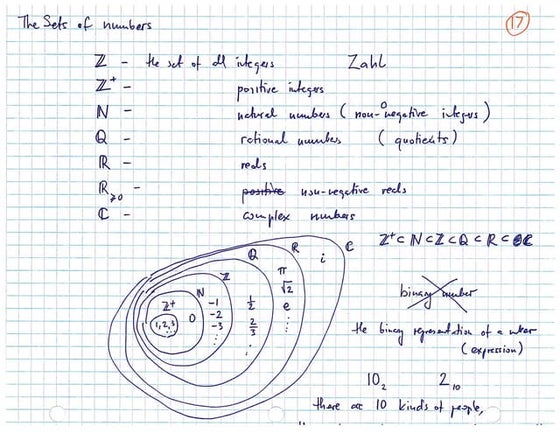 The Sets of numbers
17
ℤ – the set of all integers Zahl
ℤ⁺ – positive integers
ℕ – natural numbers (non-negative integers)
0
ℚ – rational numbers (quotients)
ℝ – reals
ℝ≥0 – positive non-negative reals
ℂ – complex numbers
ℤ⁺ ⊂ ℕ ⊂ ℤ ⊂ ℚ ⊂ ℝ ⊂ ℂ
ℤ⁺ ℕ ℤ ℚ ℝ ℂ
1, 2, 3 ...
0
-1
-2
-3
⋮
1/2
2/3
⋮
π
√2
e
⋮
i
binary number
the binary representation of a number
(expression)
10₂ 2₁₀
there are 10 kinds of people,